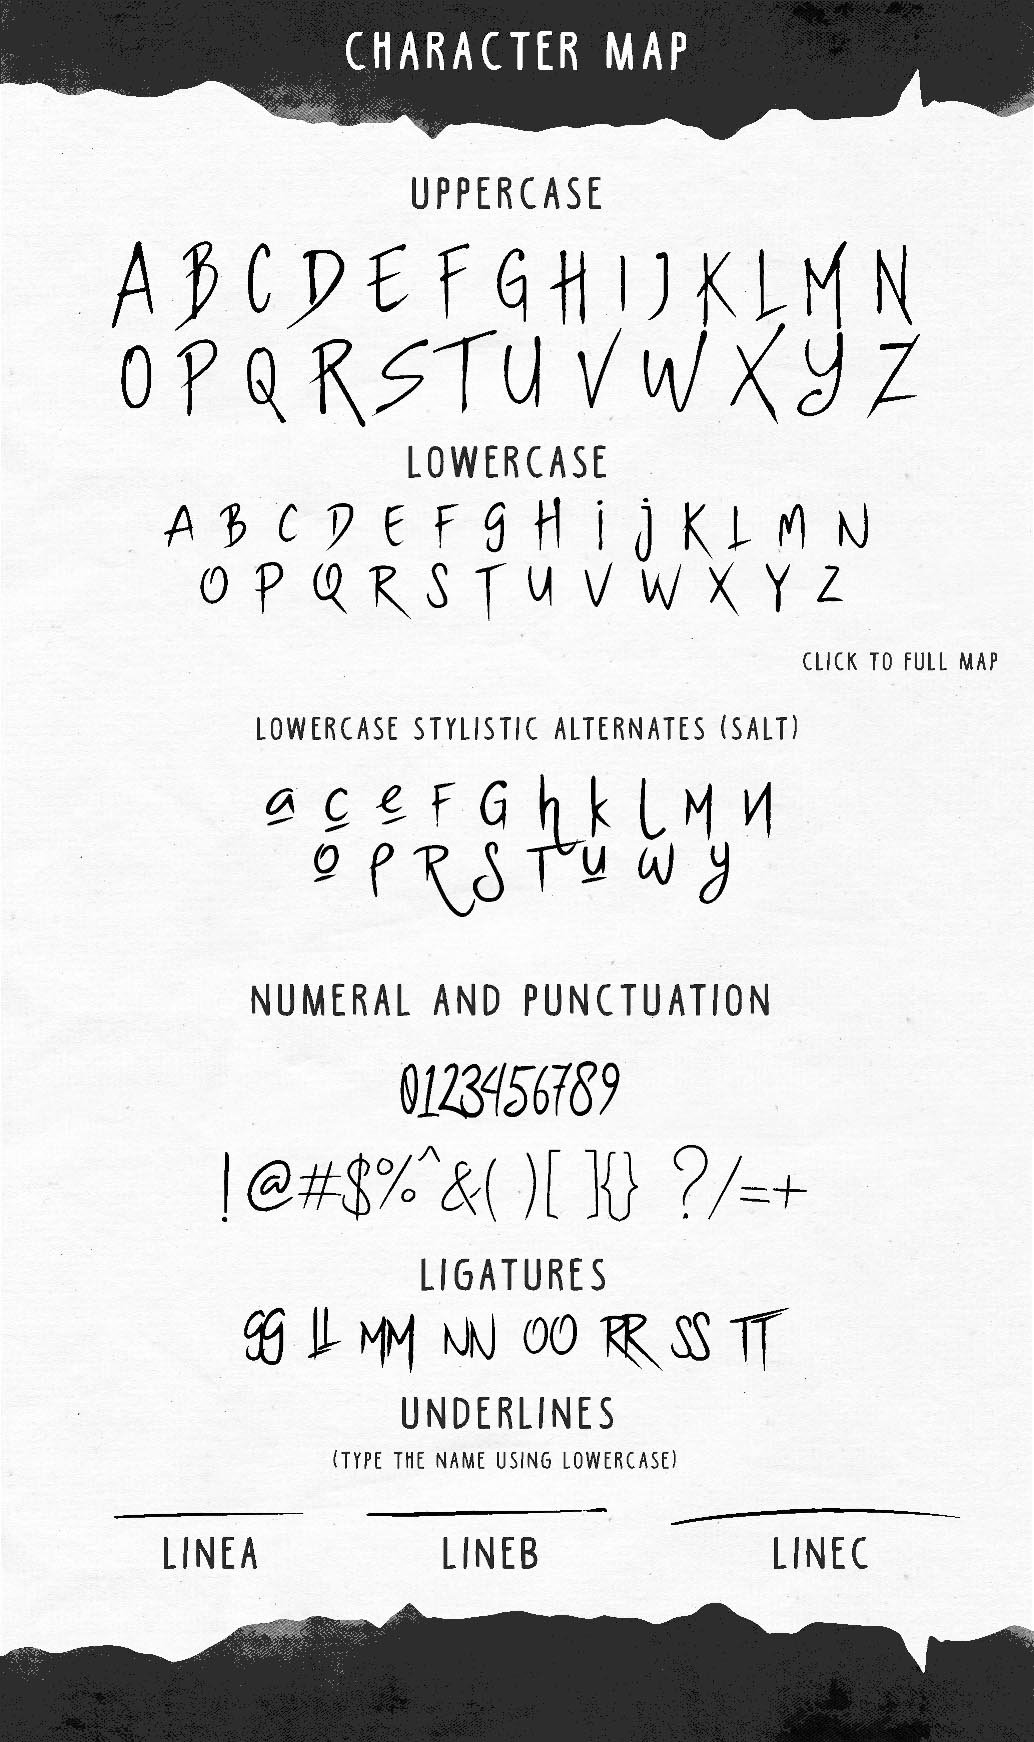 CHARACTER MAP
UPPERCASE
A B C D E F G H I J K L M N
O P Q R S T U V W X Y Z
LOWERCASE
A B C D E F g H i j K L M N
O P Q R S T U V W X Y Z
CLICK TO FULL MAP
LOWERCASE STYLISTIC ALTERNATES (SALT)
a c e F G h k l M N
o P R S T u w y
NUMERAL AND PUNCTUATION
0123456789
!@#$%^&( )[ ]{} ?/=+
LIGATURES
gg LL MM NN OO RR SS TT
UNDERLINES
(TYPE THE NAME USING LOWERCASE)
LINEA LINEB LINEC